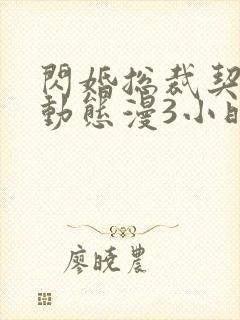 閃婚總裁契
動態漫3小時
廖曉農